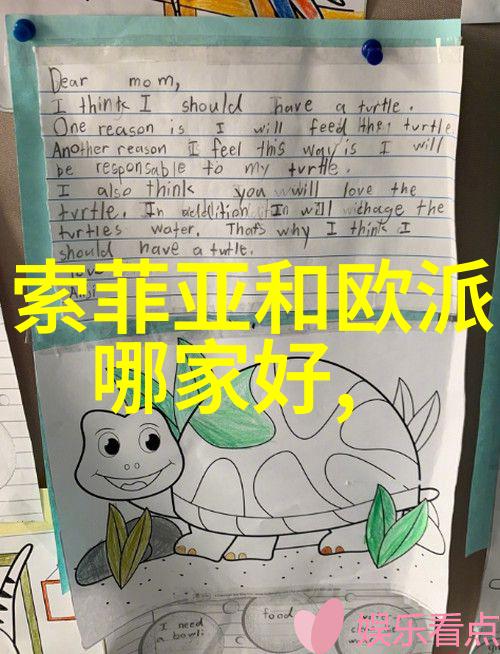 Dear mom,
I think I should have a turtle.
One reason is I will feed the turtle.
Another reason I feel this way is I will
be responsable to my turtle.
I also think you will love the
turtle. In addition I will chage the
turtles water. Thats why I think I
should have a turtle.
love
索菲亚和欧派
哪家好,
I need
a bowl
food
娱乐看点